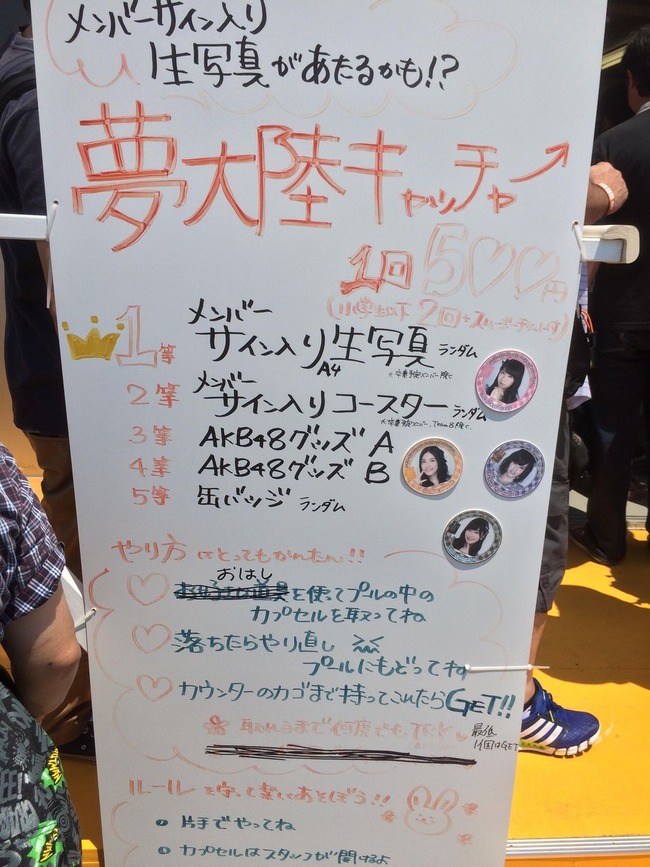 メンバーサイン入り
生写真があたるかも!?
夢大陸キャッチャー
1回500円
(小学生以下 2回
1等 メンバーサイン入り生写真 ランダム
A4
2等 メンバーサイン入りコースター ランダム
3等 AKB48グッズ A
4等 AKB48グッズ B
5等 缶バッジ ランダム
やり方はとってもかんたん!!
おはし
を使ってプールの中の
カプセルを取ってね
落ちたらやり直し
プールにもどってね
カウンターのカゴまで持ってこれたらGET!!
取れるまで何度でもTRY
最低
1個はGET
ルールを守って楽しくあそぼう!!
片手でやってね
カプセルはスタッフが開けるよ